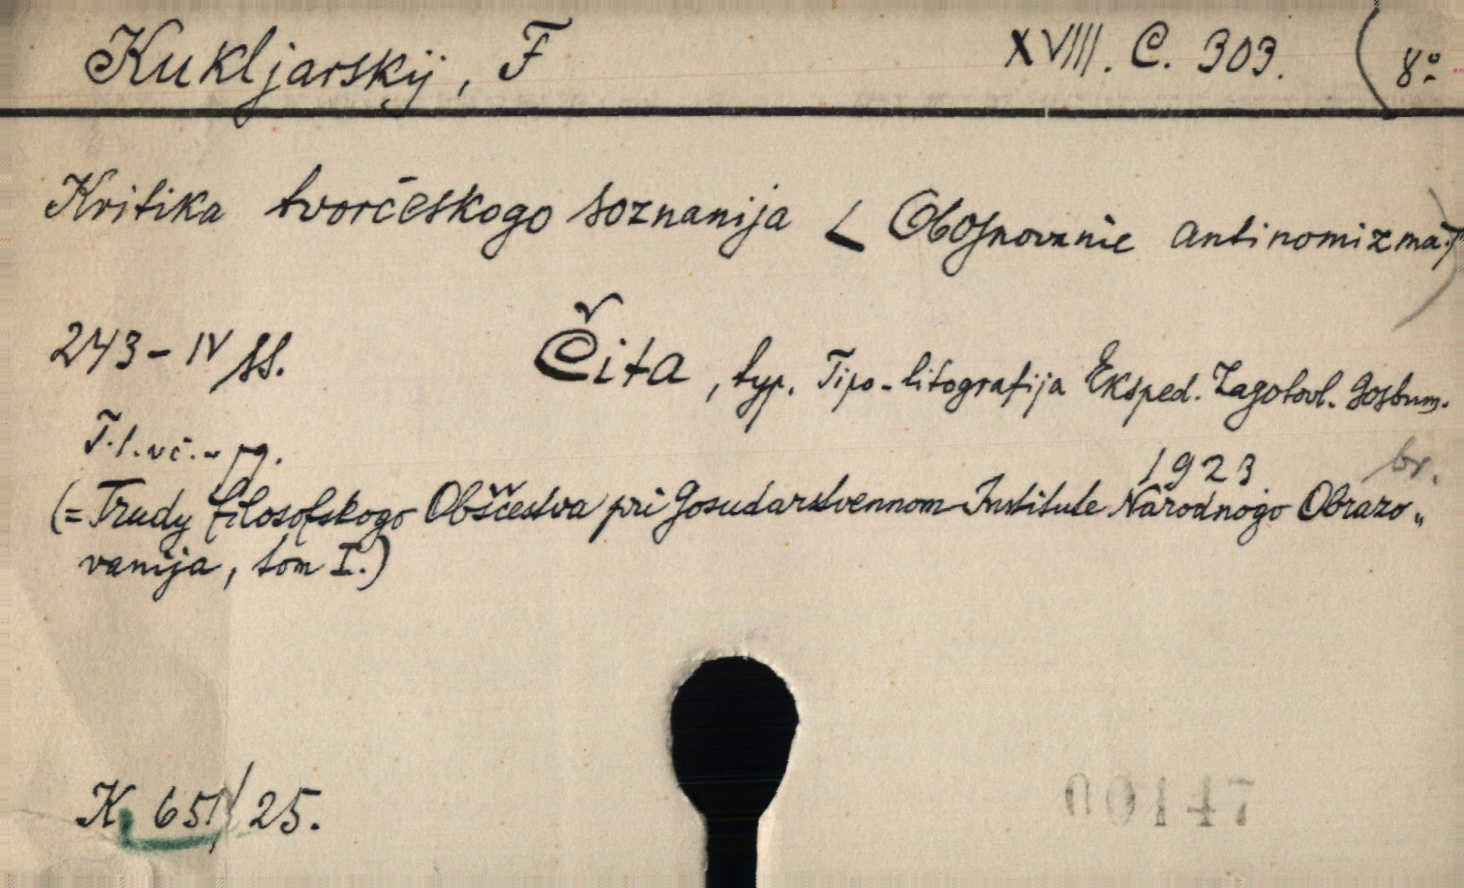 Kukljarskij, F XVIII. C. 303. (8º
Kritika tvorčeskogo soznanija [Obosnovanie antinomizma.]
243-IV ss. Čita, typ. Tipo-litografija Eksped. Zagotovl. Gosbum.
T.l.vč.-rg. 1923 br.
(= Trudy filosofskogo Obščestva pri Gosudarstvennom Institute Narodnogo Obrazo„
vanija, tom I.)
K 651/25.
74100